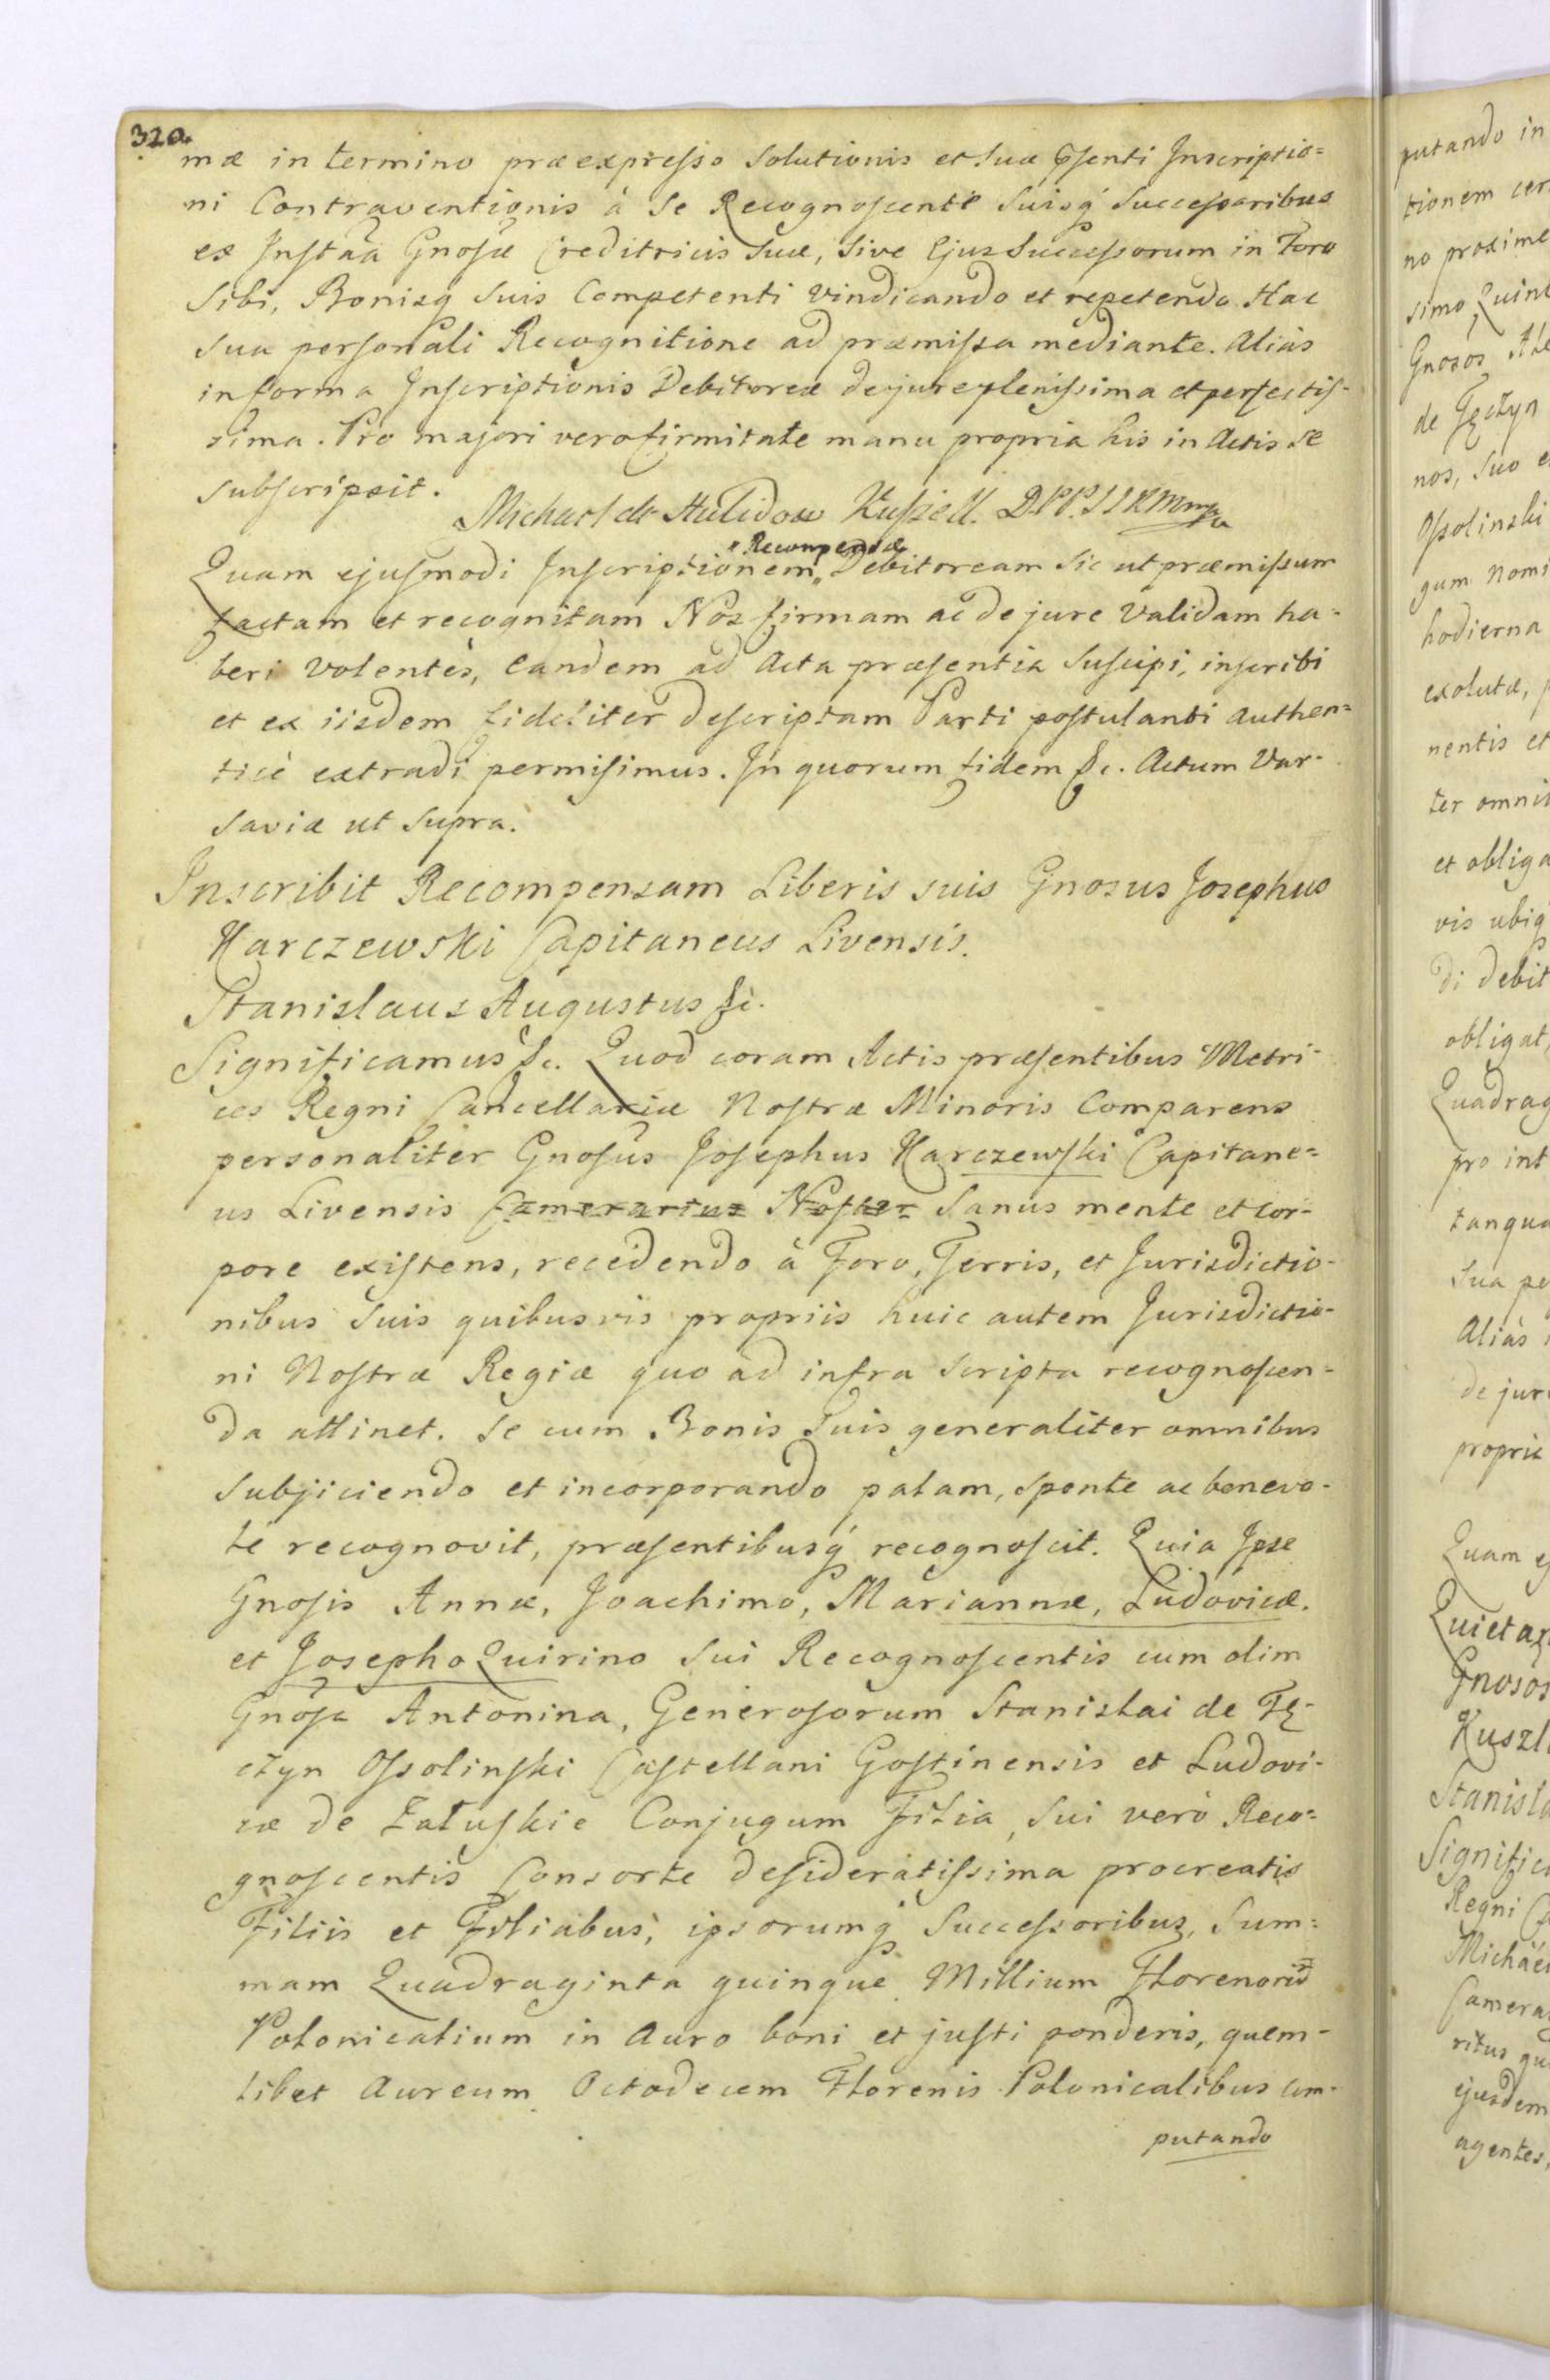 320.
mæ in termino præexpresso Solutionis et Suæ pñsenti Inscriptio=
ni Contraventionis à Se Recognoscente Suisq́ Successoribus
ex Instãa Gnosæ Creditricis Suæ, Sive Ejus Successorum in Foro
Sibi, Bonisq́ Suis Competenti Vindicando et repetendo. Hac
Sua personali Recognitione ad præmissa mediante. Aliàs
in forma Inscriptionis Debitoreæ de jure plenissima et perfectis-
sima. Pro majori vero firmitate manu propria his in Actis se
subscripsit.
Michael de Kuszell. D.P.P.
Quam ejusmodi Inscriptionem „Recompensæ Debitoream Sic ut præmissum
factam et recognitam Nos firmam ac de jure Validam ha-
beri Volentes, Eandem ad Acta præsentia Suscipi, inscribi
et ex iisdem fideliter descriptam Parti postulanti authen=
ticè extradi permisimus. In quorum fidem &c. Actum Var-
saviæ ut Supra.
Inscribit Recompensam Liberis suis Gnosus Josephus
Karczewski Capitaneus Livensis.
Stanislaus Augustus &c.
Significamus &c. Quod coram Actis præsentibus Metri-
ces Regni Cancellariæ Nostræ Minoris Comparens
personaliter Gnosus Josephus Karczewski Capitane=
us Livensis Camerarius Noster Sanus mente et cor-
pore existens, recedendo à Foro, Terris, et Jurisdictio-
nibus Suis quibusvis propriis huic autem Jurisdictio-
ni Nostræ Regiæ quo ad infra scripta recognoscen-
da attinet. Se cum Bonis Suis generaliter omnibus
Subjiciendo et incorporando palam, sponte ac benevo-
lè recognovit, præsentibusq́ recognoscit. Quia Ipse
Gnosis Annæ, Joachimo, Mariannæ, Ludovicæ.
et Josepho Quirino Sui Recognoscentis cum olim
Gnosa Antonina, Generosorum Stanislai de Tę-
czyn Ossolinski Castellani Gostinensis et Ludovi-
cæ de Załuskie Conjugum Filia, Sui verò Reco=
gnoscentis Consorte desideratissima procreatis
Filiis et Filiabus, ipsorumq́ Successoribus, Sum=
mam Quadraginta quinque Millium Florenorũ
Polonicalium in Auro boni et justi ponderis, quem-
libet Aureum Octodecem Florenis Polonicalibus com-
putando
putando in
tionem cer
no proxime
simo Quint
Gnosos
de Tęczyn
nos, Suo e
Ossolinski
gum Nomi
hodierna
exolutæ,
nentis et
ter omni
et obliga
vis ubiq́
di debit
obligat,
Quadrag
pro int
tanqua
Sua pe
Aliàs
de jur
propria
Quam ej
Quietat
Gnosos
Kuszl
Stanisla
Signific
Regni C
Michae
Camera
ritus qu
ejusdem
agentes,